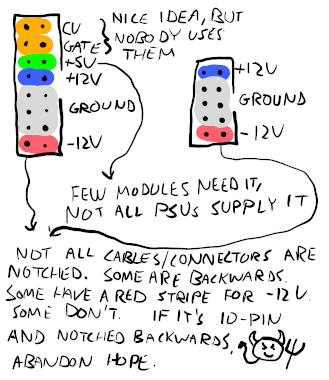 CV
GATE
+5V
+12V
GROUND
-12V
NICE IDEA, BUT
NOBODY USES
THEM
+12V
GROUND
-12V
FEW MODULES NEED IT,
NOT ALL PSUs SUPPLY IT
NOT ALL CABLES/CONNECTORS ARE
NOTCHED. SOME ARE BACKWARDS.
SOME HAVE A RED STRIPE FOR -12V.
SOME DON'T. IF IT'S 10-PIN
AND NOTCHED BACKWARDS,
ABANDON HOPE.